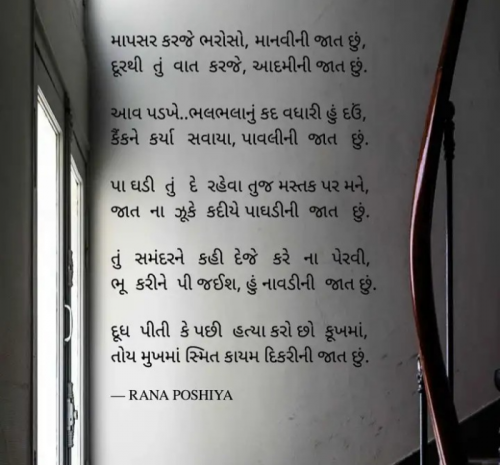 માપસર કરજે ભરોસો, માનવીની જાત છું,
દૂરથી તું વાત કરજે, આદમીની જાત છું.
આવ પડખે..ભલભલાનું કદ વધારી હું દઉં,
કૈંકને કર્યા સવાયા, પાવલીની જાત છું.
પા ઘડી તું દે રહેવા તુજ મસ્તક પર મને,
જાત ના ઝૂકે કદીયે પાઘડીની જાત છું.
તું સમંદરને કહી દેજે કરે ના પેરવી,
ભૂ કરીને પી જઈશ, હું નાવડીની જાત છું.
દૂધ પીતી કે પછી હત્યા કરો છો કૂખમાં,
તોય મુખમાં સ્મિત કાયમ દિકરીની જાત છું.
— RANA POSHIYA